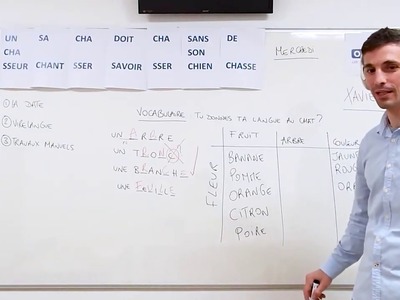 UN SA CHA DOIT CHA SANS DE
CHA SON
SSEUR CHANT SSER SAVOIR SSER CHIEN CHASSE
MERCREDI
XAVIE
① LA DATE
② VIRELANGUE
③ TRAVAUX MANUELS
VOCABULAIRE TU DONNES TA LANGUE AU CHAT?
UN ARBRE
UN TRONC
UNE BRANCHE
UNE FEUILLE
FLEUR
FRUIT ARBRE COULEUR
BANANE JAUNE
POMME ROUG
ORANGE ORA
CITRON
POIRE